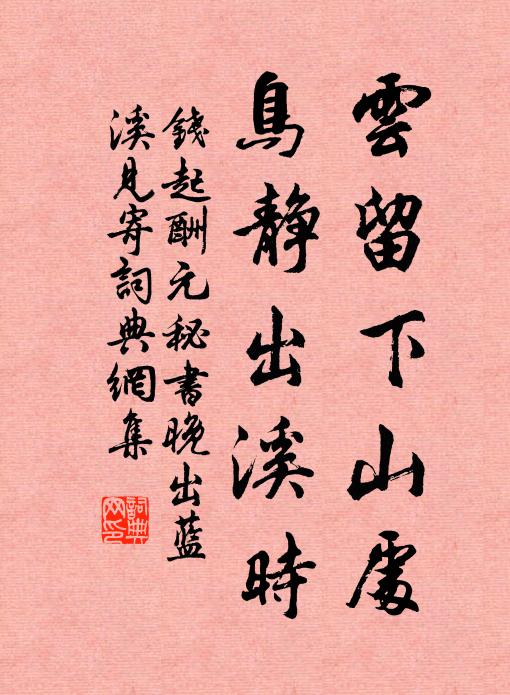 雲留下山處
鳥靜出溪時
錢起酬元秘書晚出藍
溪見寄詞典網集
詞典網印